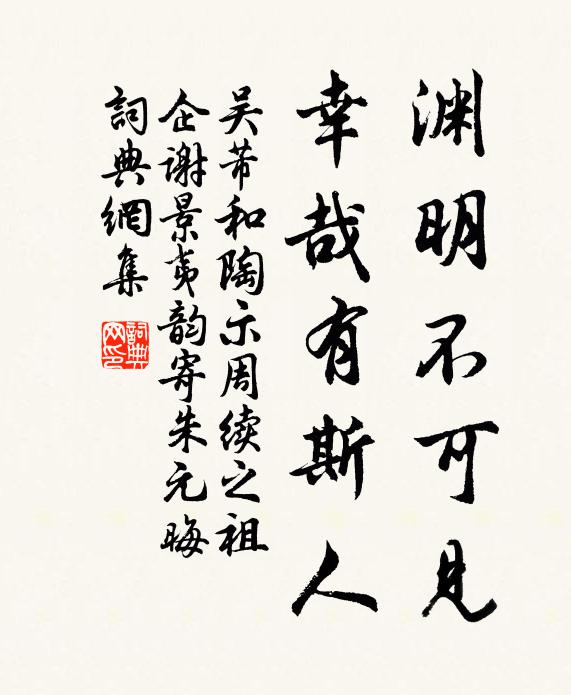 渊明不可见
幸哉有斯人
吴芾和陶示周续之祖
企谢景夷韵寄朱元晦
詞典網集
詞典
网印